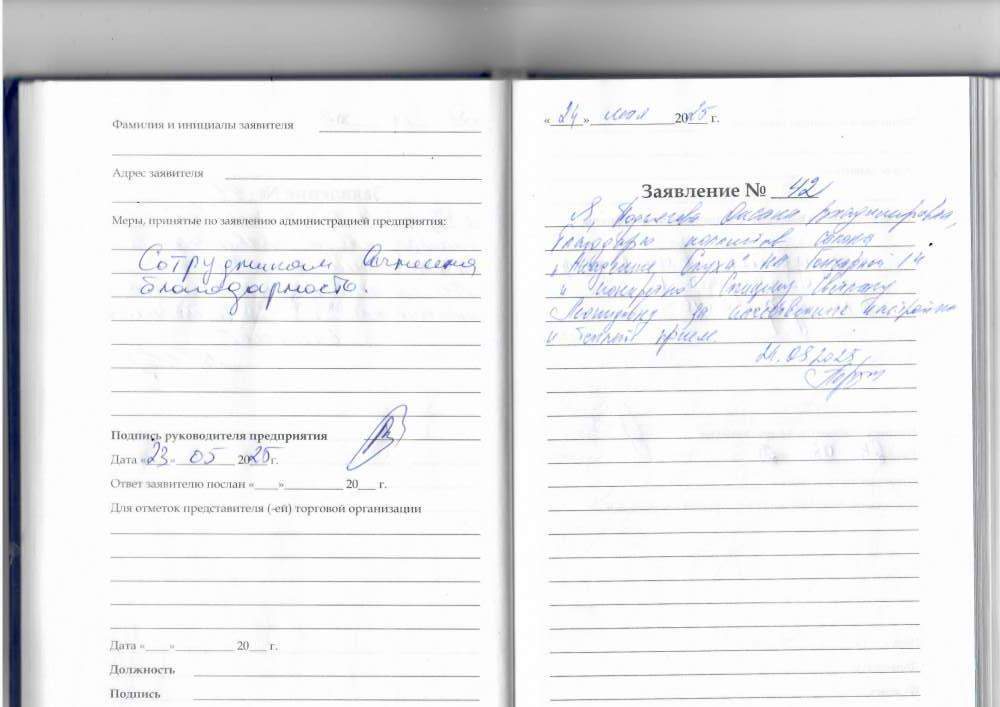 Фамилия и инициалы заявителя
Адрес заявителя
Меры, принятые по заявлению администрацией предприятия:
Сотрудникам
благодарность.
Подпись руководителя предприятия
Дата «23» 05 2025г.
Ответ заявителю послан «___»__________ 20___ г.
Для отметок представителя (-ей) торговой организации
Дата «____»__________ 20___ г.
Должность
Подпись
«24» мая 2025 г.
Заявление № 42
Я, Оксана Владимировна,
салона
слуха" на
и
за настройки
и теплый прием.